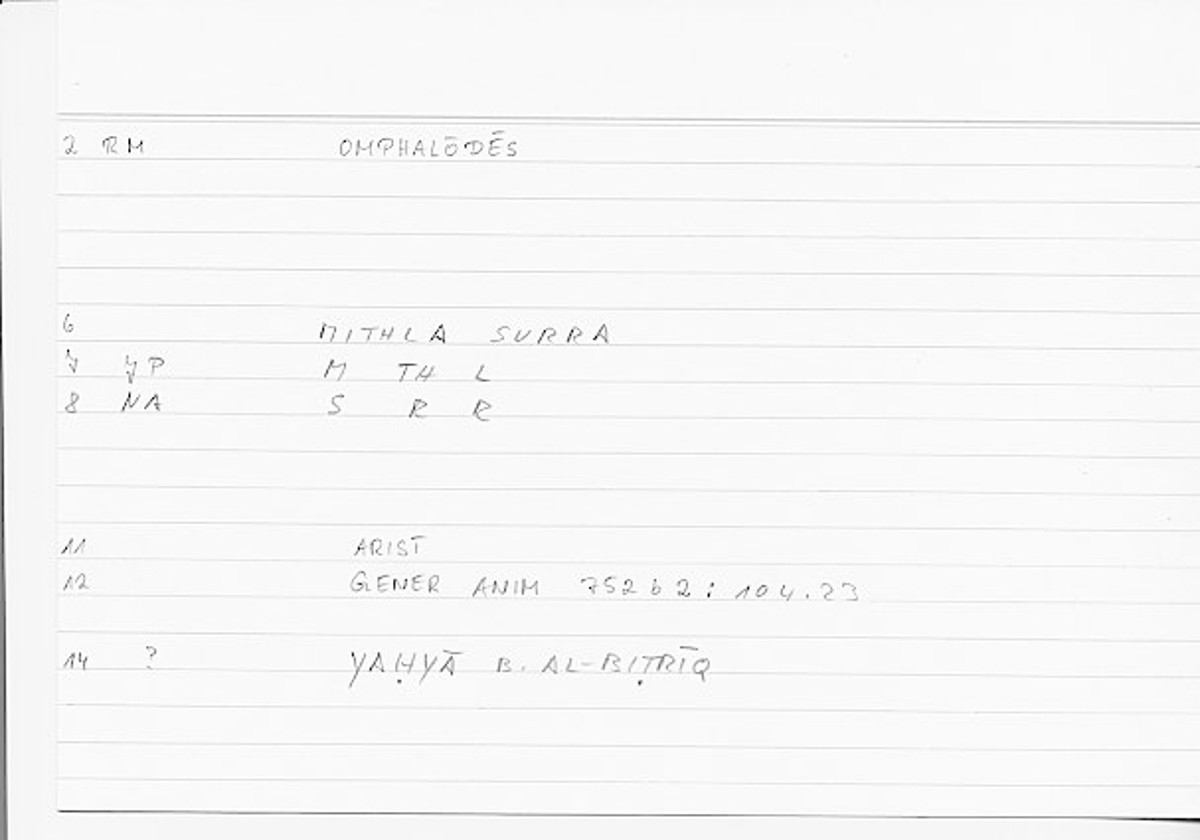 2 RM OMPHALŌDĒS
6 MITHLA SURRA
7 YP M TH L
8 NA S R R
11 ARIST
12 GENER ANIM 752 b 2 : 104.23
14 ? YAḤYĀ B. AL-BIṬRĪQ